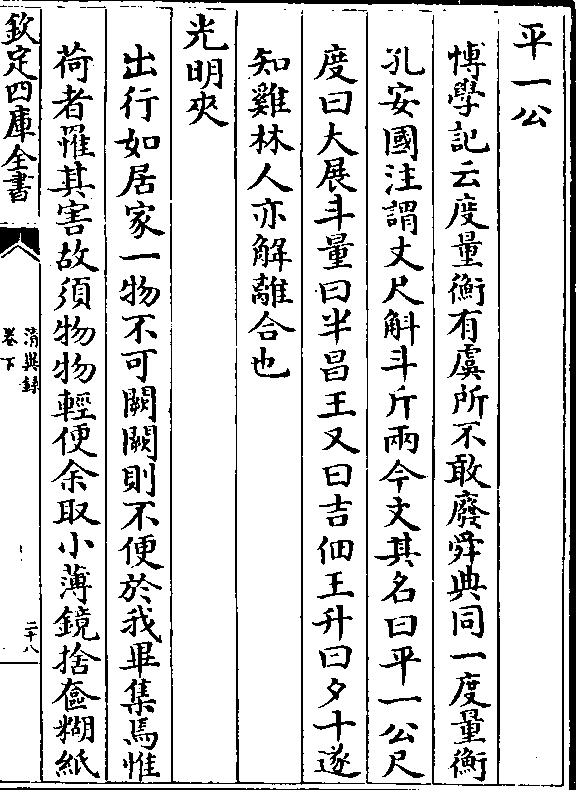 平一公
博學記云度量衡有虞所不敢廢舜典同一度量衡
孔安國注謂丈尺斛斗斤兩今文其名曰平一公尺
度曰大展斗量曰半昌王又曰吉佃王升曰夕十遂
知雞林人亦解離合也
光明夾
出行如居家一物不可闕闕則不便於我畢集焉惟
荷者罹其害故須物物輕便余取小薄鏡捨奩糊紙
欽定四庫全書
清異錄
卷下
二十八